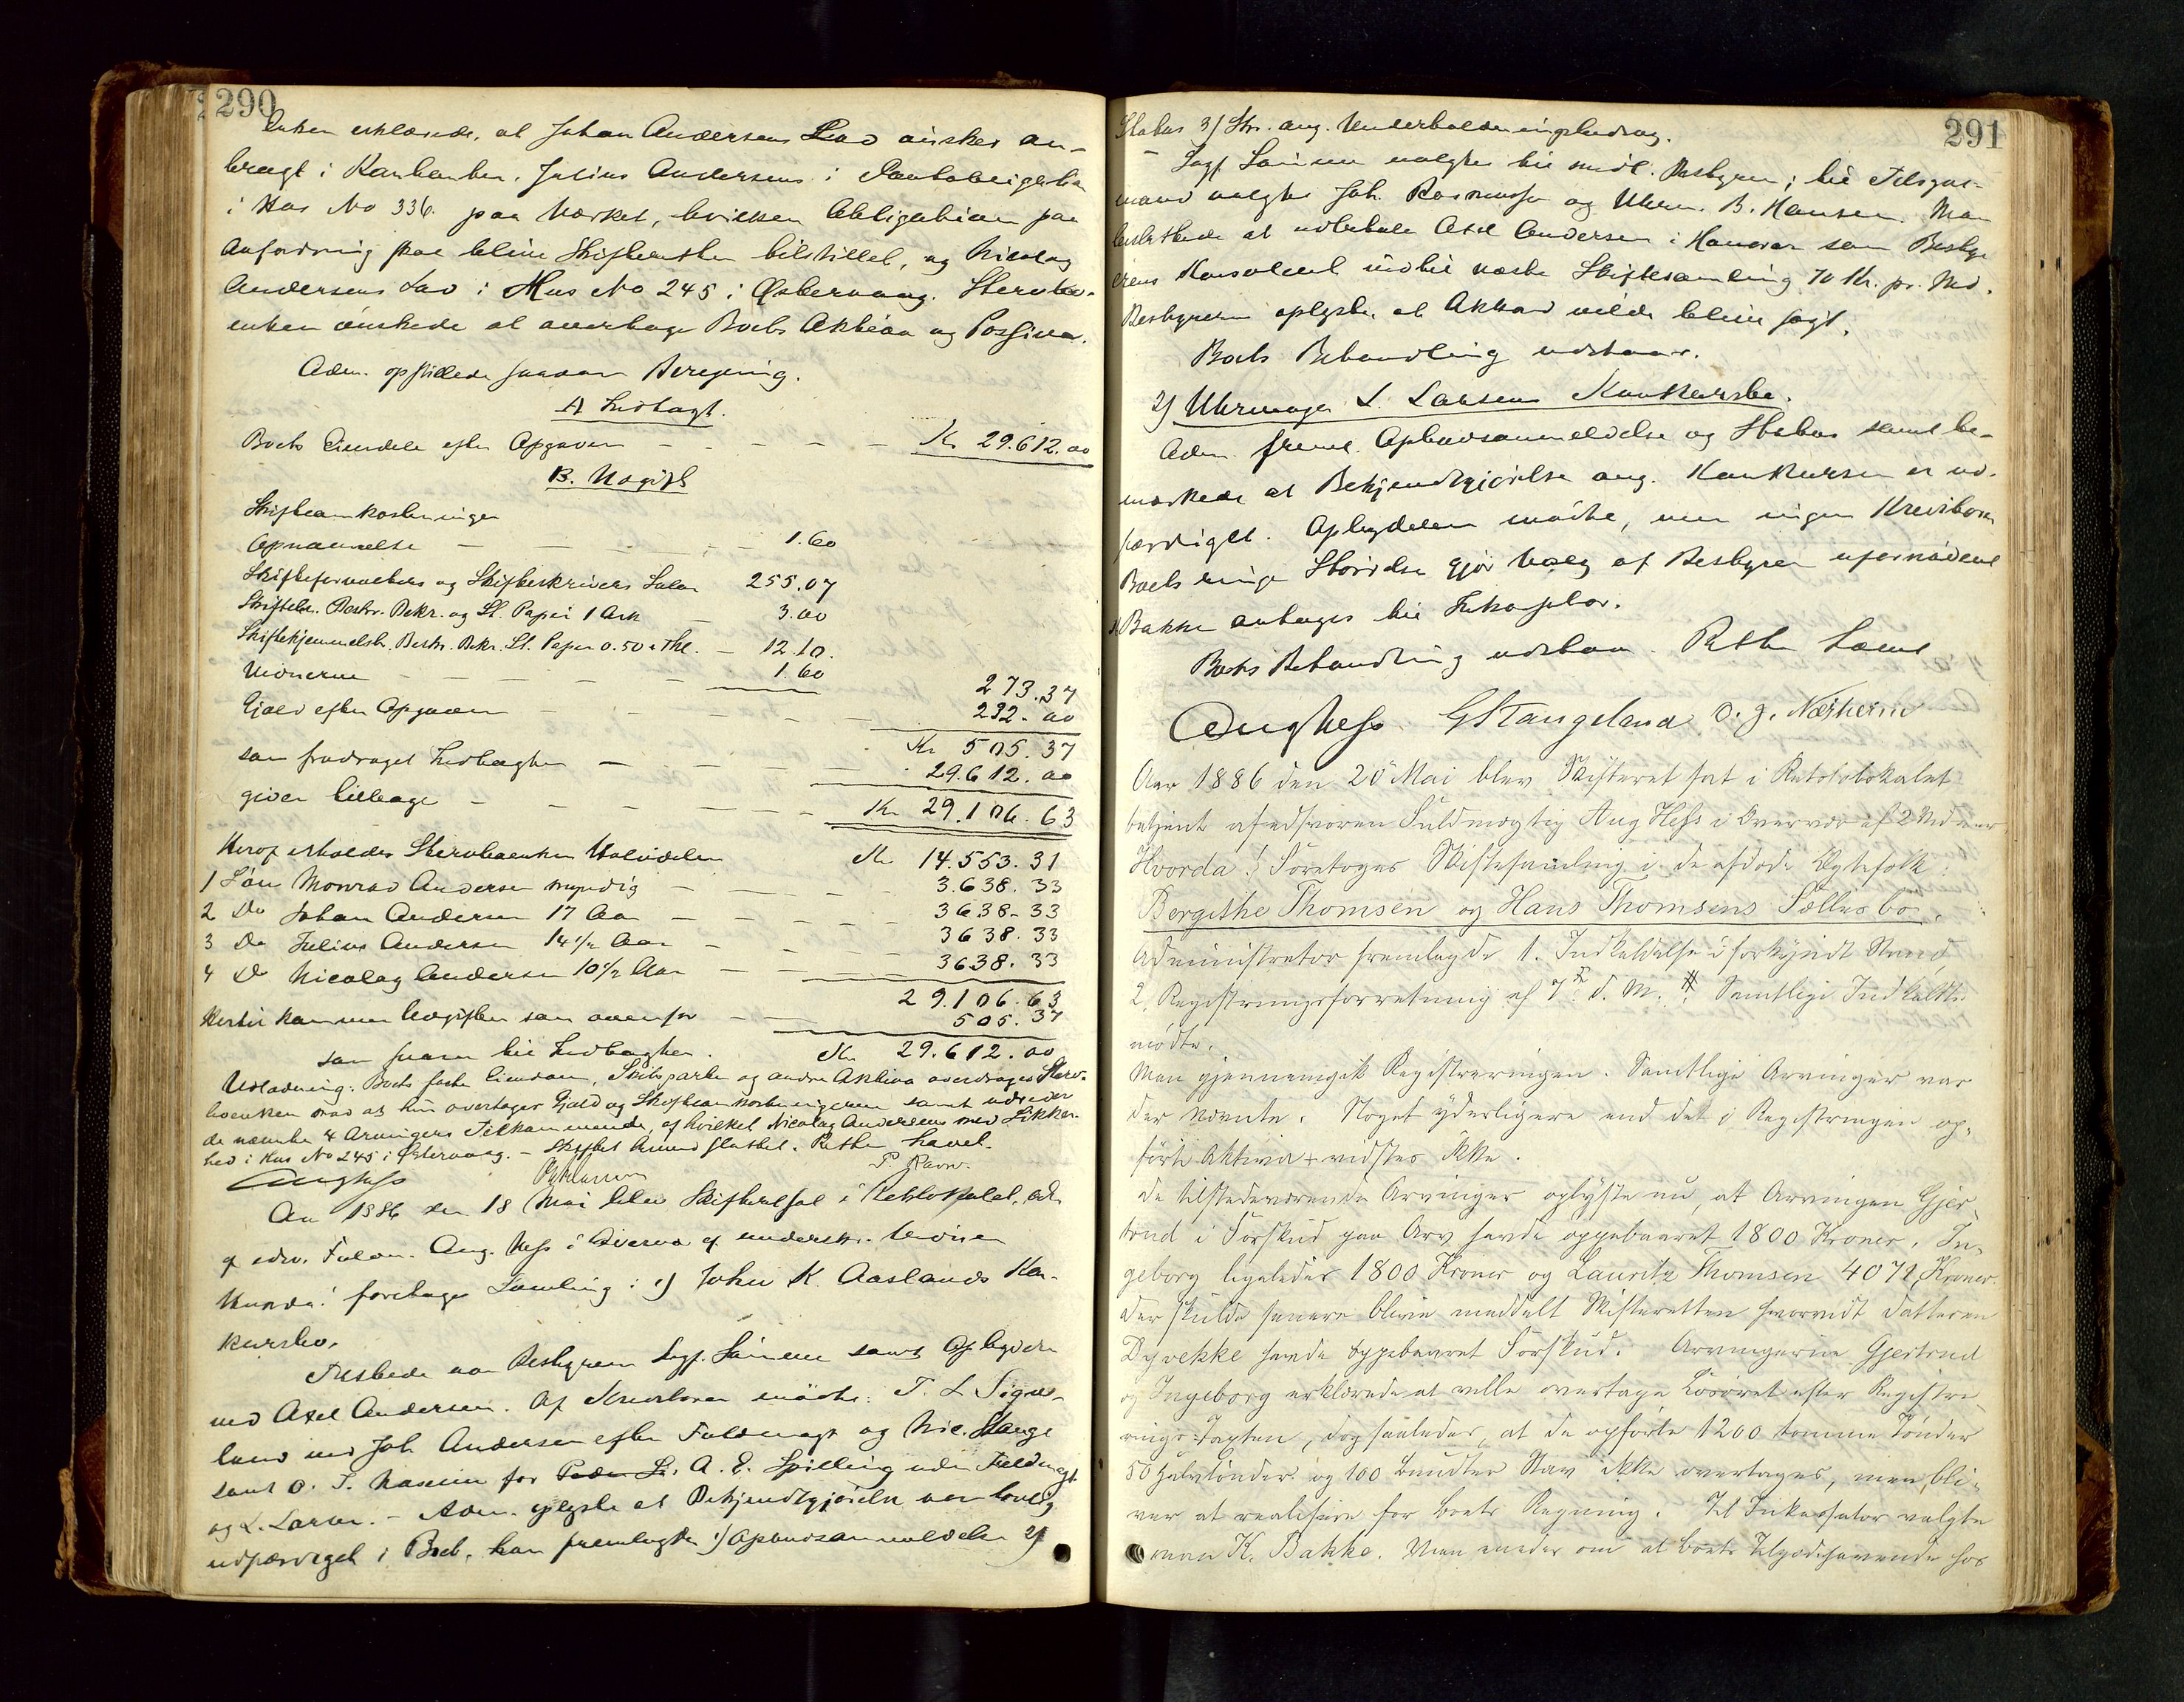 290
Enken erklærede, at Johan Andersens Lod ønskes an-
bragt i Kambanken, Julius Andersens i Pantobligation
i Hus No 336 paa Værket, hvilken Obligation paa
Anfordring skal blive Skifteretten tilstillet, og Nicolay
Andersens Lod i Hus No 245 i Østervaag. Stervbo-
enken ønskede at overtage Boets Aktiva og Passiva.
Adm. opstillede saadan Beregning.
A Indtægt.
Boets Eiendele efter Opgaven - - - - Kr 29.612.00
B. Udgift
Skifteomkostninger
Opnævnelse - - - - 1.60
Skifteforvalters og Skifteskrivers Salær 255.07
Skiftebr. Beskr. Bekr. og St. Papir 1 Ark - 3.00
Skiftehjemmelsbr. Beskr. Bekr. St. Papir 0.50 - 12.10.
Vidnerne - - - - - 1.60
273.37
Gjæld efter Opgaven - - - - - 232.00
Kr 505.37
som fradraget Indtægten - - - - 29.612.00
giver tilbage - - - - - Kr 29.106.63
Heraf erholder Stervboenken Halvdelen Kr 14.553.31
1 Søn Monrad Andersen myndig - - - - 3.638.33
2 Do Johan Andersen 17 Aar - - - - 3638.33
3 Do Julius Andersen 14 1/2 Aar - - - 3638.33
4 Do Nicolay Andersen 10 1/2 Aar - - - 3638.33
29.106.63
Hertil kommer Udgiften som ovenfor - - 505.37
som svarer til Indtægten. Kr 29.612.00
Udlodning: Boets faste Eiendom, Skibsparter og andre Aktiva overdrages Sterv-
boenken mod at hun overtager Gjæld og Skifteomkostningerne samt udreder
de nævnte 4 Arvingers Tilkommende, af hvilket Nicolay Andersens med Sikker-
hed i Hus No 245 i Østervaag. - Skiftet sluttet. Retten hævet.
Aug Hess P. Ravn.
Aar 1886 den 18 Mai blev Skifteret sat i Retslokalet, adm.
af edsv. Fuldm. Aug. Hess i Overvær af underskr. Vidner
Hvorda! foretages Samling i: 1) John K. Aaslands Kon-
kursbo.
Tilstede var Bestyreren Sagf. samt Opbyderen
med Axel Andersen. Af Kreditorer mødte: T. L.
land ved Joh. Andersen efter Fuldmagt og Nic. Stange
samt O. J. for A. E. Spilling uden Fuldmagt
og L. Larsen. - Adm. oplyste at Bekjendtgjørelse var lovlig
udfærdiget i Boet, han fremlagde 1) Opbudsanmeldelse 2)
291
Status 3) Skr. ang. Underholdningsbidrag.
Sagf. valgtes til midl. Bestyrer; til Tilsyns-
mænd valgtes Joh. Rasmussen og Uhrm. B. Hansen. Man
besluttede at udbetale Axel Andersen i Honorar som Besty-
rerens Konsulent indtil næste Skiftesamling 70 Kr. pr. Md.
Bestyreren oplyste, at Akkord vilde blive søgt.
Boets Behandling udstaar.
2) Uhrmager L. Larsens Konkursbo.
Adm. freml. Opbudsanmeldelse og Status samt be-
mærkede at Bekjendtgjørelse ang. Konkursen er ud-
færdiget. Opbyderen mødte, men ingen Kreditorer
Boets ringe Størrelse gjør Valg af Bestyrer ufornødent
Bakke antages til Inkassator.
Boets Behandling udstaar. Retten hævet
Aug Hess G Stangeland O. J.
Aar 1886 den 20 Mai blev Skifteret sat i Retslokalet
betjent af edsvoren Fuldmægtig Aug Hess i Overvær af 2 Vidner
Hvorda! Foretoges Skiftesamling i de afdøde Ægtefolk:
Bergithe Thomsen og Hans Thomsens Fællesbo.
Administrator fremlagde 1. Indkaldelse i forkyndt Stand,
2. Registreringsforretning af 7de d. M. Samtlige Indkaldte
mødte.
Man gjennemgik Registreringen. Samtlige Arvinger var
der nævnte. Noget yderligere end det i Registringen op-
førte Aktiva vidstes ikke.
De tilstedeværende Arvinger oplyste nu, at Arvingen Gjer-
trud i Forskud paa Arv havde oppebaaret 1800 Kroner. In-
geborg ligeledes 1800 Kroner og Lauritz Thomsen 4071 Kroner.
Der skulde senere blive meddelt Skifteretten hvorvidt Datteren
Dyvekke havde oppebaaret Forskud. Arvingerne Gjertrud
og Ingeborg erklærede at ville overtage Løsøret efter Registre-
rings-Taxten, dog saaledes, at de opførte 1200 tomme Tønder
50 Halvtønder og 100 Bundter Stav ikke overtages, men bli-
ver at realisere for Boets Regning. Til Inkassator valgte
man K. Bakke. Man enedes om at Boets Tilgodehavende hos